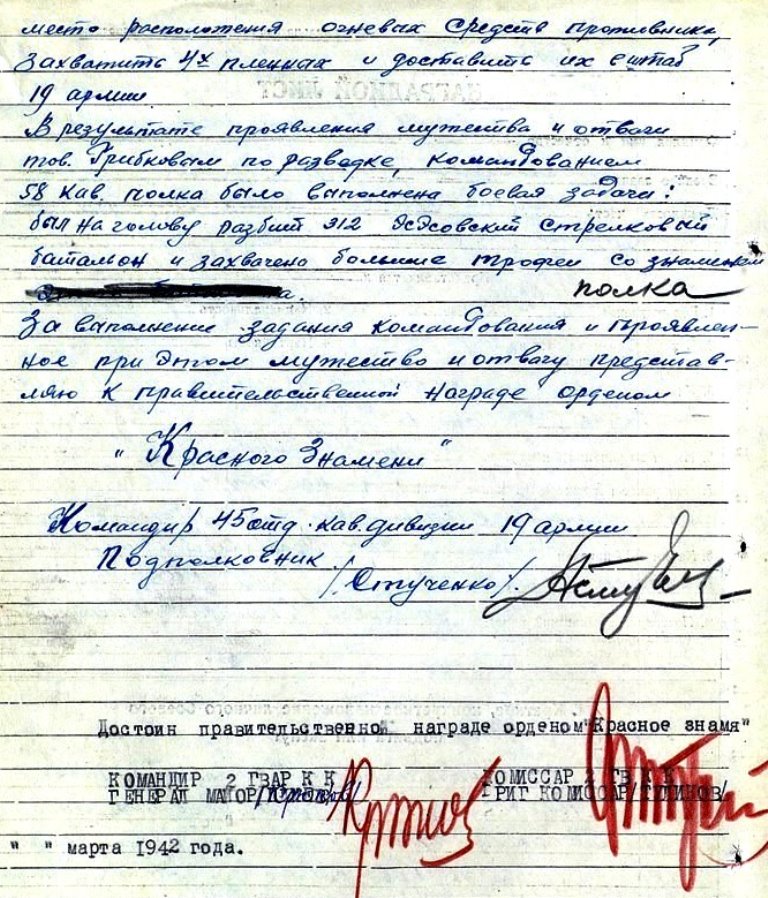 место расположения огневых средств противника,
захватить 4х пленных и доставить их в штаб
19 армии
В результате проявления мужества и отваги
тов. Грибковым по разведке, командованием
58 Кав. полка было выполнена боевая задача:
был на голову разбит 312 эсэсовский стрелковый
батальон и захвачено большие трофеи со знаменем
полка
За выполнение задания командования и проявлен-
ное при этом мужество и отвагу представ-
ляю к правительственной награде орденом
"Красного Знамени"
Командир 45 отд. кав. дивизии 19 армии
Подполковник /Стученко/.
Достоин правительственной награде орденом "Красное знамя"
КОМАНДИР 2 ГВАР К К КОМИССАР 2 ГВ К К
ГЕНЕРАЛ МАЙОР БРИГ КОМИССАР /ТУЛИКОВ/
" " марта 1942 года.